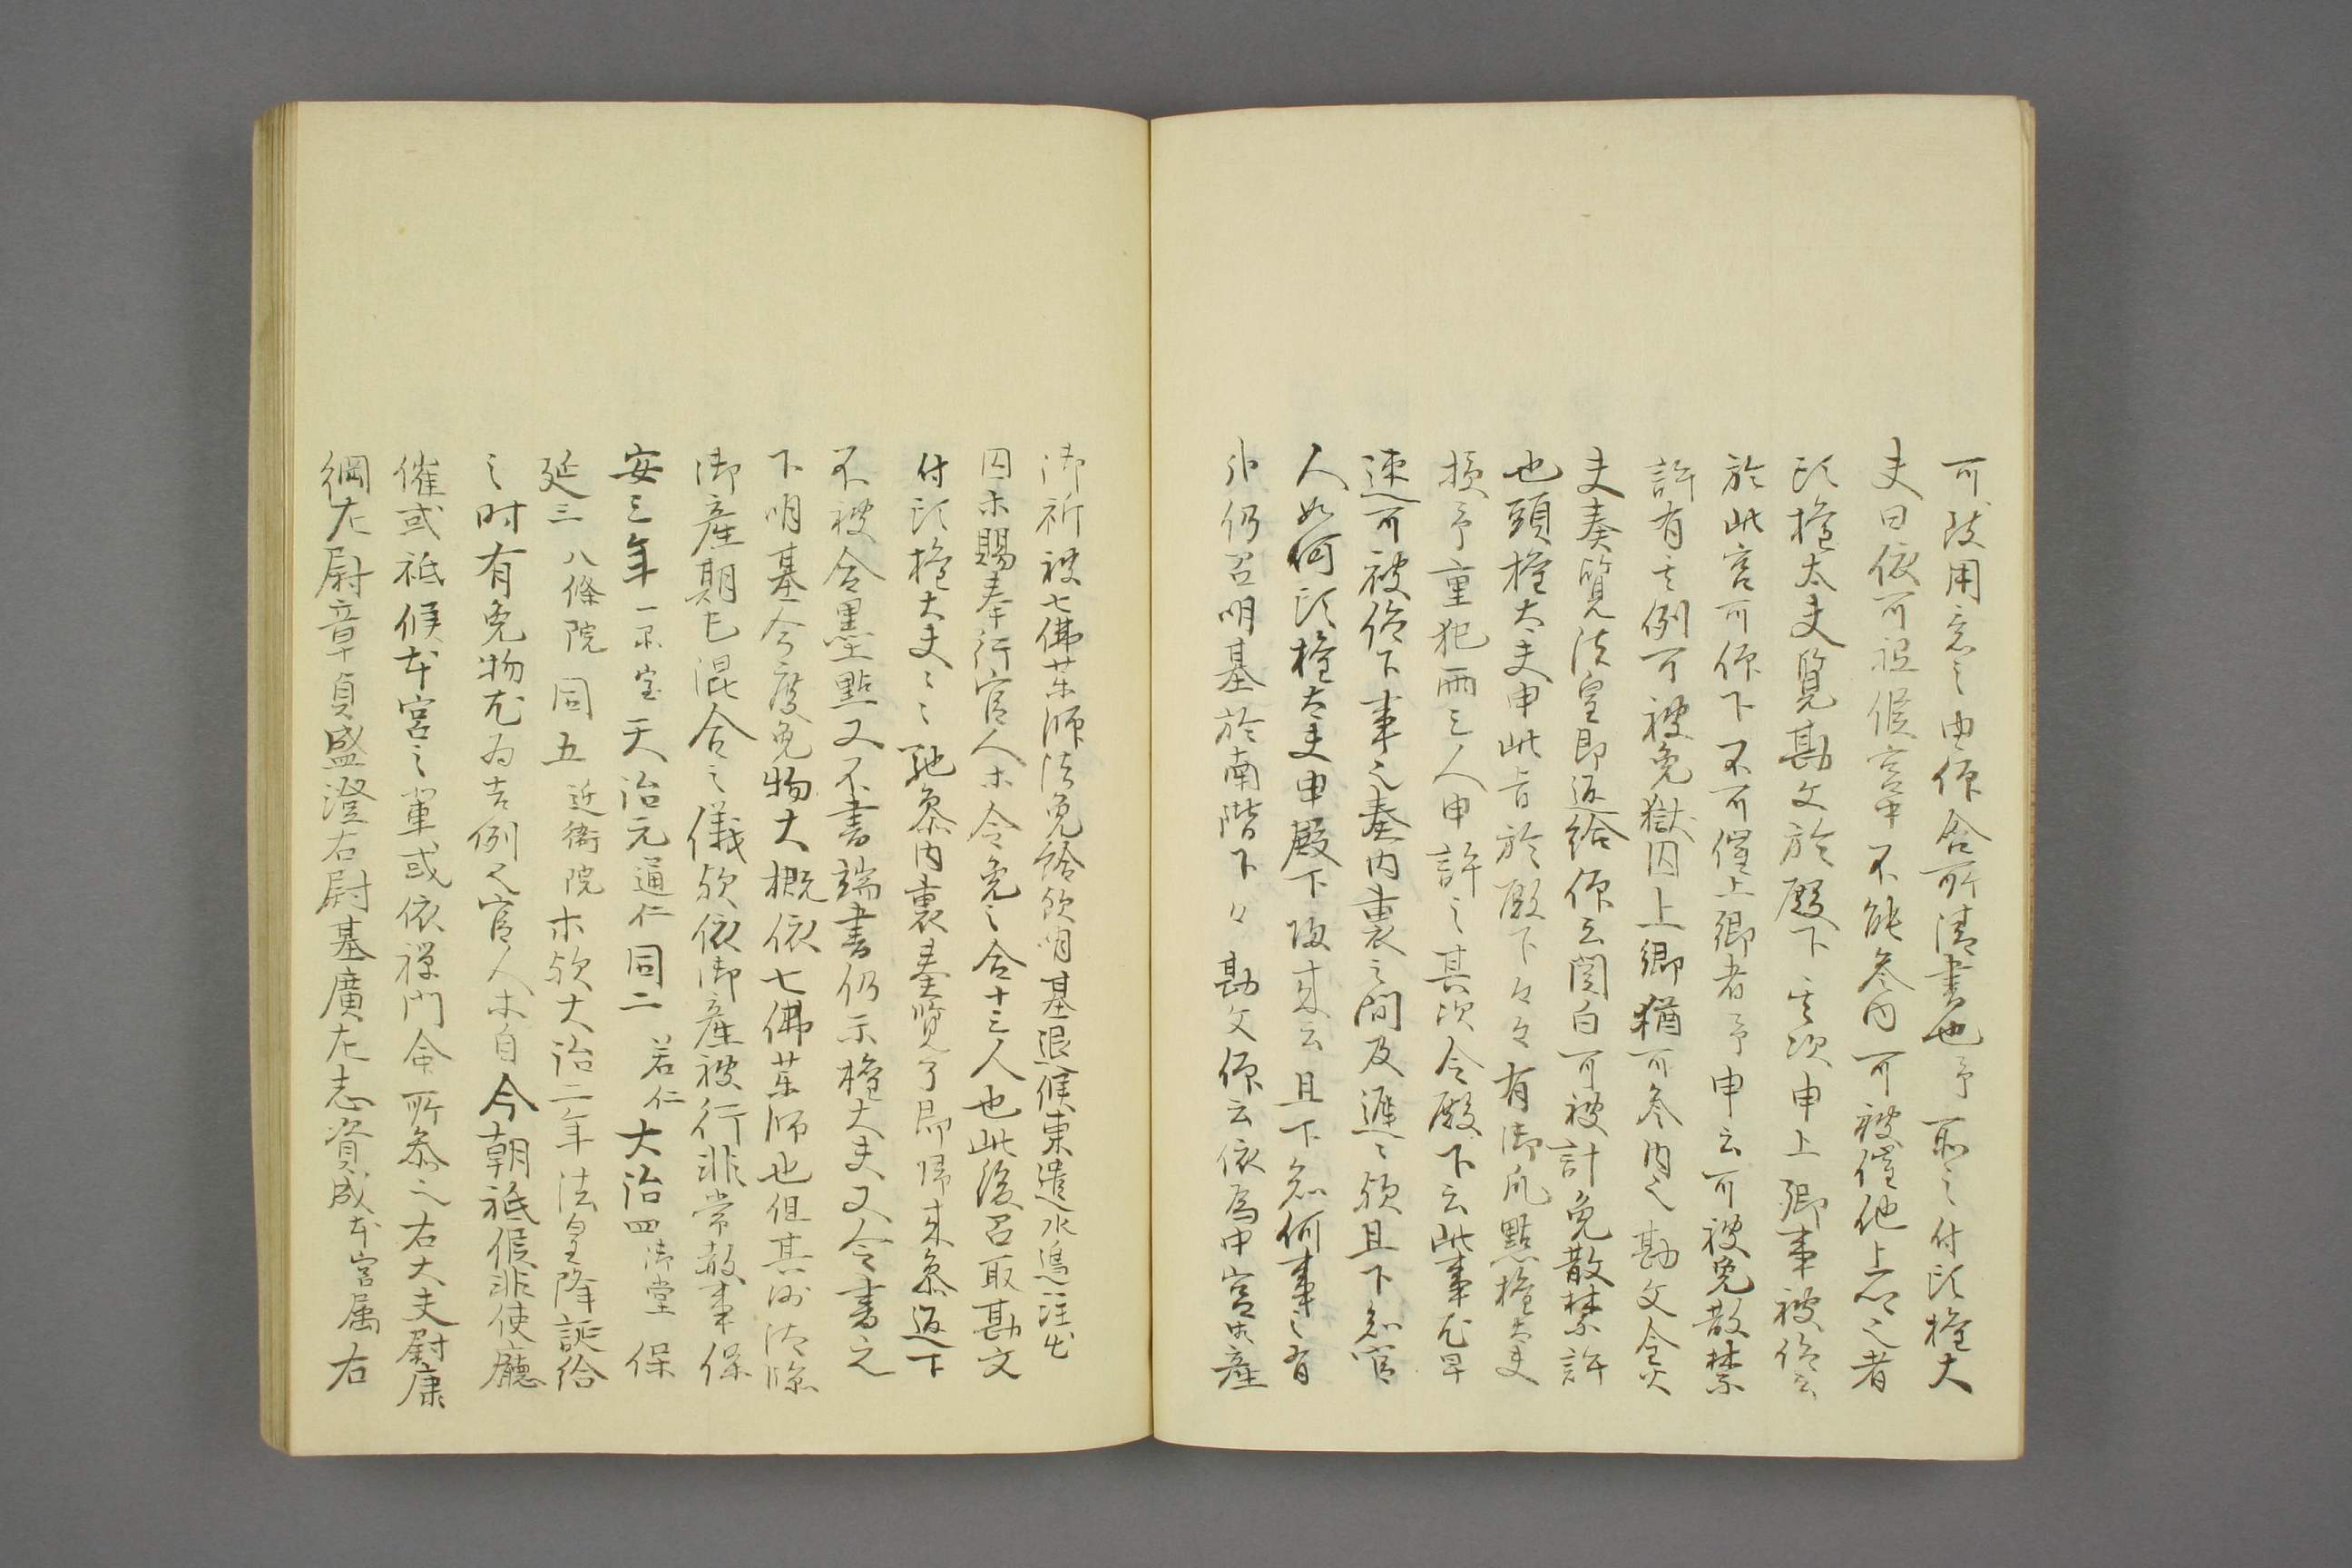 可披用意之由仰含所清書也予取之付頭権大
夫曰依可祗候宮中不能参内可被催他上卿之者
頭権大夫覧勘文於殿下其次申上卿事被仰云
於此宮可仰下不可催上卿者予申云可被免散禁
許有其例可被免獄囚上卿猶可参内之勘文合炎
夫奏覧法皇即返給仰云関白可被計免散禁許
也頭権大夫申此旨於殿下々々有御爪點権大夫
損予重犯両三人申許之其次令殿下云此事尤早
速可被仰下事之奏内裏之間及遅々歟且下知官
人如何頭権大夫申殿下帰来云且下知何事之有
仍召明基於南階下々勘文仰云依為中宮御産
御祈被七佛薬師法免給歟明基退候東遣水邊注出
囚木賜奉行官人木令免之合十三人也此後召取勘文
付頭権大夫之之馳参内裏奏覧了即帰来参返下
不被合墨點又不書端書仍示権大夫又令書之
下明基今度免物大概依七佛薬師也但其御法除
御産期已混合之儀歟依御産被行非常赦事保
安三年一品宮天治元通仁同二若仁大治四御堂保
延三八條院同五近衛院木歟大治二年法皇降誕給
之時有免物尤為吉例又官人木自今朝祗候非使廳
催或祗候本宮之輩或依禅門命所参之右大夫尉康
綱左尉章貞盛澄右尉基廣左志資成本宮属右